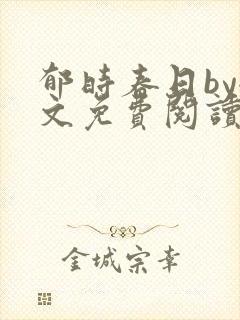 郁時春日by
文免費閱讀
金城宗幸